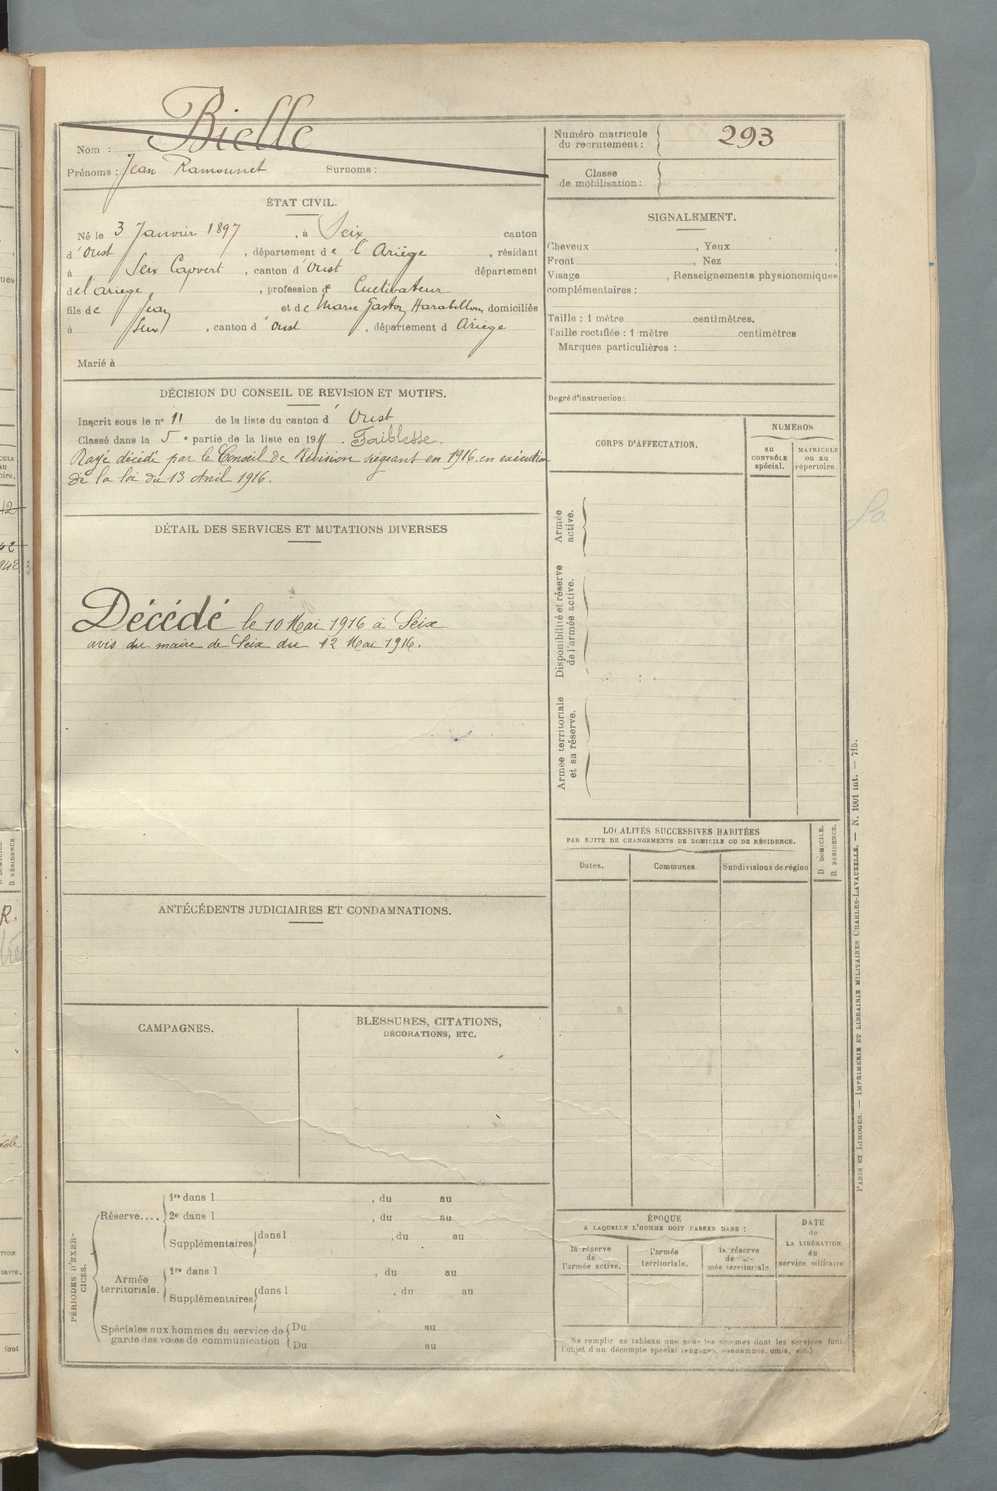 Nom : Bielle
Prénoms : Jean Ramounet Surnoms :
Numéro matricule du recrutement : 293
Classe de mobilisation :
ÉTAT CIVIL.
Né le 3 Janvier 1897, à Seix canton
d'Oust, département de l'Ariège, résidant
à Seix Capvert, canton d'Oust département
de l'ariege, profession de Cultivateur
fils de Jean et de Marie domiciliés
à Seix, canton d'Oust, département d Ariège
Marié à
SIGNALEMENT.
Cheveux , Yeux ,
Front , Nez
Visage , Renseignements physionomiques
complémentaires :
Taille : 1 mètre centimètres.
Taille rectifiée : 1 mètre centimètres
Marques particulières :
Degré d'instruction :
DÉCISION DU CONSEIL DE REVISION ET MOTIFS.
Inscrit sous le n° 11 de la liste du canton d'Oust
Classé dans la 5e partie de la liste en 191 . Faiblesse.
Rayé décédé par le Conseil de Révision siégeant en 1916. en exécution
de la loi du 13 Avril 1916.
DÉTAIL DES SERVICES ET MUTATIONS DIVERSES
Décédé le 10 Mai 1916 à Seix
avis du maire de Seix du 12 Mai 1916.
CORPS D'AFFECTATION.
NUMÉROS
AU CONTRÔLE spécial.
MATRICULE OU AU répertoire.
Armée active.
Disponibilité et réserve de l'armée active.
Armée territoriale et sa réserve.
LOCALITÉS SUCCESSIVES HABITÉES
PAR SUITE DE CHANGEMENTS DE DOMICILE OU DE RÉSIDENCE.
Dates.
Communes
Subdivisions de région
D DOMICILE.
R RÉSIDENCE.
ANTÉCÉDENTS JUDICIAIRES ET CONDAMNATIONS.
CAMPAGNES.
BLESSURES, CITATIONS,
DÉCORATIONS, ETC.
PÉRIODES D'EXERCICES.
Réserve....
1re dans l , du au
2e dans l , du au
Supplémentaires dans l , du au
Armée territoriale.
1re dans l , du au
Supplémentaires dans l , du au
Spéciales aux hommes du service de garde des voies de communication
Du au
Du au
ÉPOQUE
A LAQUELLE L'HOMME DOIT PASSER DANS :
la réserve de l'armée active.
l'armée territoriale.
la réserve de l'armée territoriale.
DATE de LA LIBÉRATION du service militaire
Ne remplir ce tableau que pour les hommes dont les services font
l'objet d'un décompte spécial (engagés, condamnés, omis, etc.).
PARIS ET LIMOGES. — IMPRIMERIE ET LIBRAIRIE MILITAIRES CHARLES-LAVAUZELLE. — N. 1001 int. — 715.